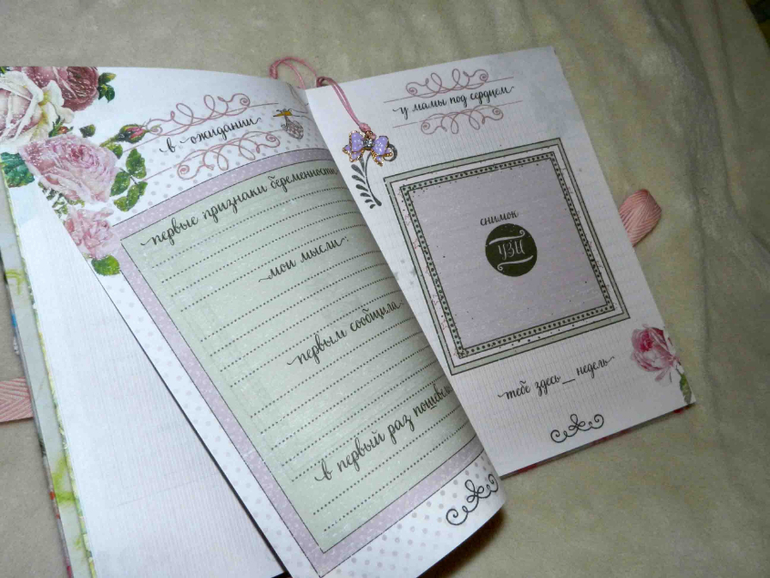 в ожидании
первые признаки беременности
мои мысли
первым сообщила
в первый раз
у мамы под сердцем
снимок
УЗИ
тебе здесь__недель